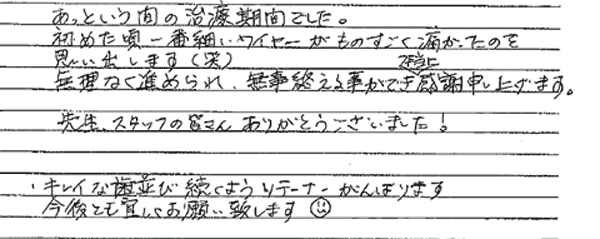 あっという間の治療期間でした。
初めた頃一番細いワイヤーがものすごく痛かったのを
思い出します(笑)
本当に
無理なく進められ、無事終える事ができ感謝申し上げます。
先生、スタッフの皆さんありがとうございました!
・キレイな歯並び続くようリテーナーがんばります
今後とも宜しくお願い致します☺